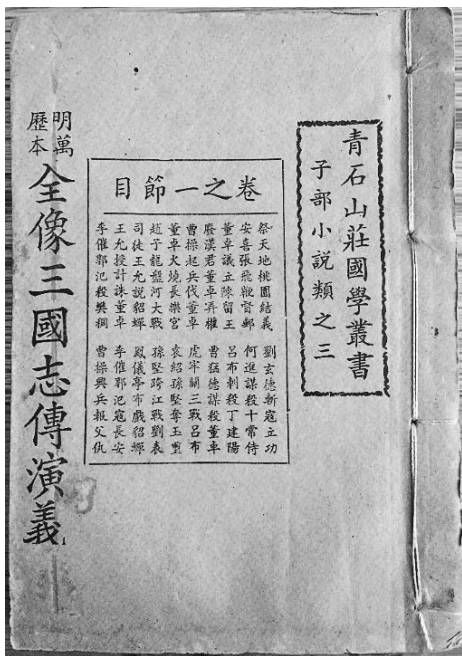 青石山莊國學叢書
子部小說類之三
卷之一節目
祭天地桃園結義 劉玄德斬寇立功
安喜張飛鞭督郵 何進謀殺十常侍
董卓議立陳留王 呂布刺殺丁建陽
廢漢君董卓弄權 曹猛德謀殺董卓
曹操起兵伐董卓 虎牢關三戰呂布
董卓火燒長樂宮 袁紹孫堅奪玉璽
趙子龍盤河大戰 孫堅跨江戰劉表
司徒王允說貂蟬 鳳儀亭布戲貂蟬
王允授計誅董卓 李傕郭汜寇長安
李傕郭汜殺樊稠 曹操興兵報父仇
明萬
歷本
全像三國志傳演義